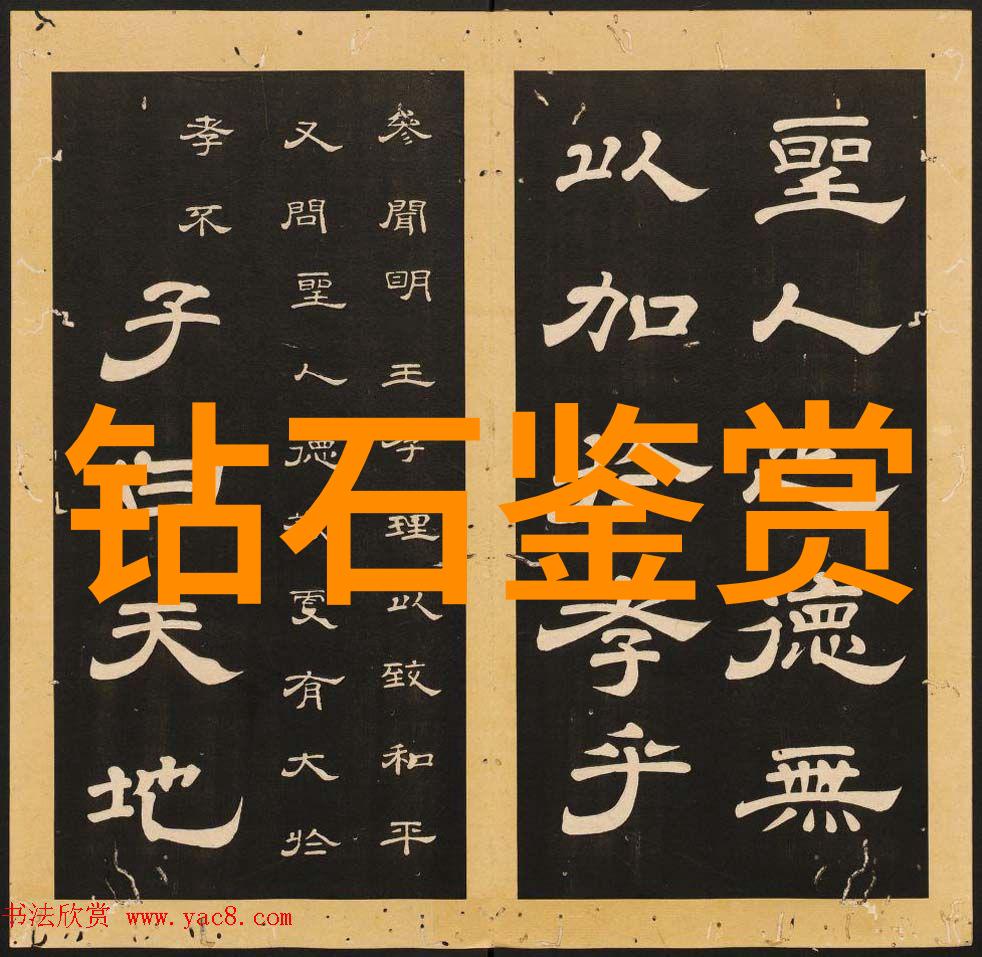 聖人之德無
以加於孝乎
參聞明王孝理以致和平
又問聖人德更有大於
孝不
子曰天地
钻石鉴赏
书法欣赏 www.yac8.com